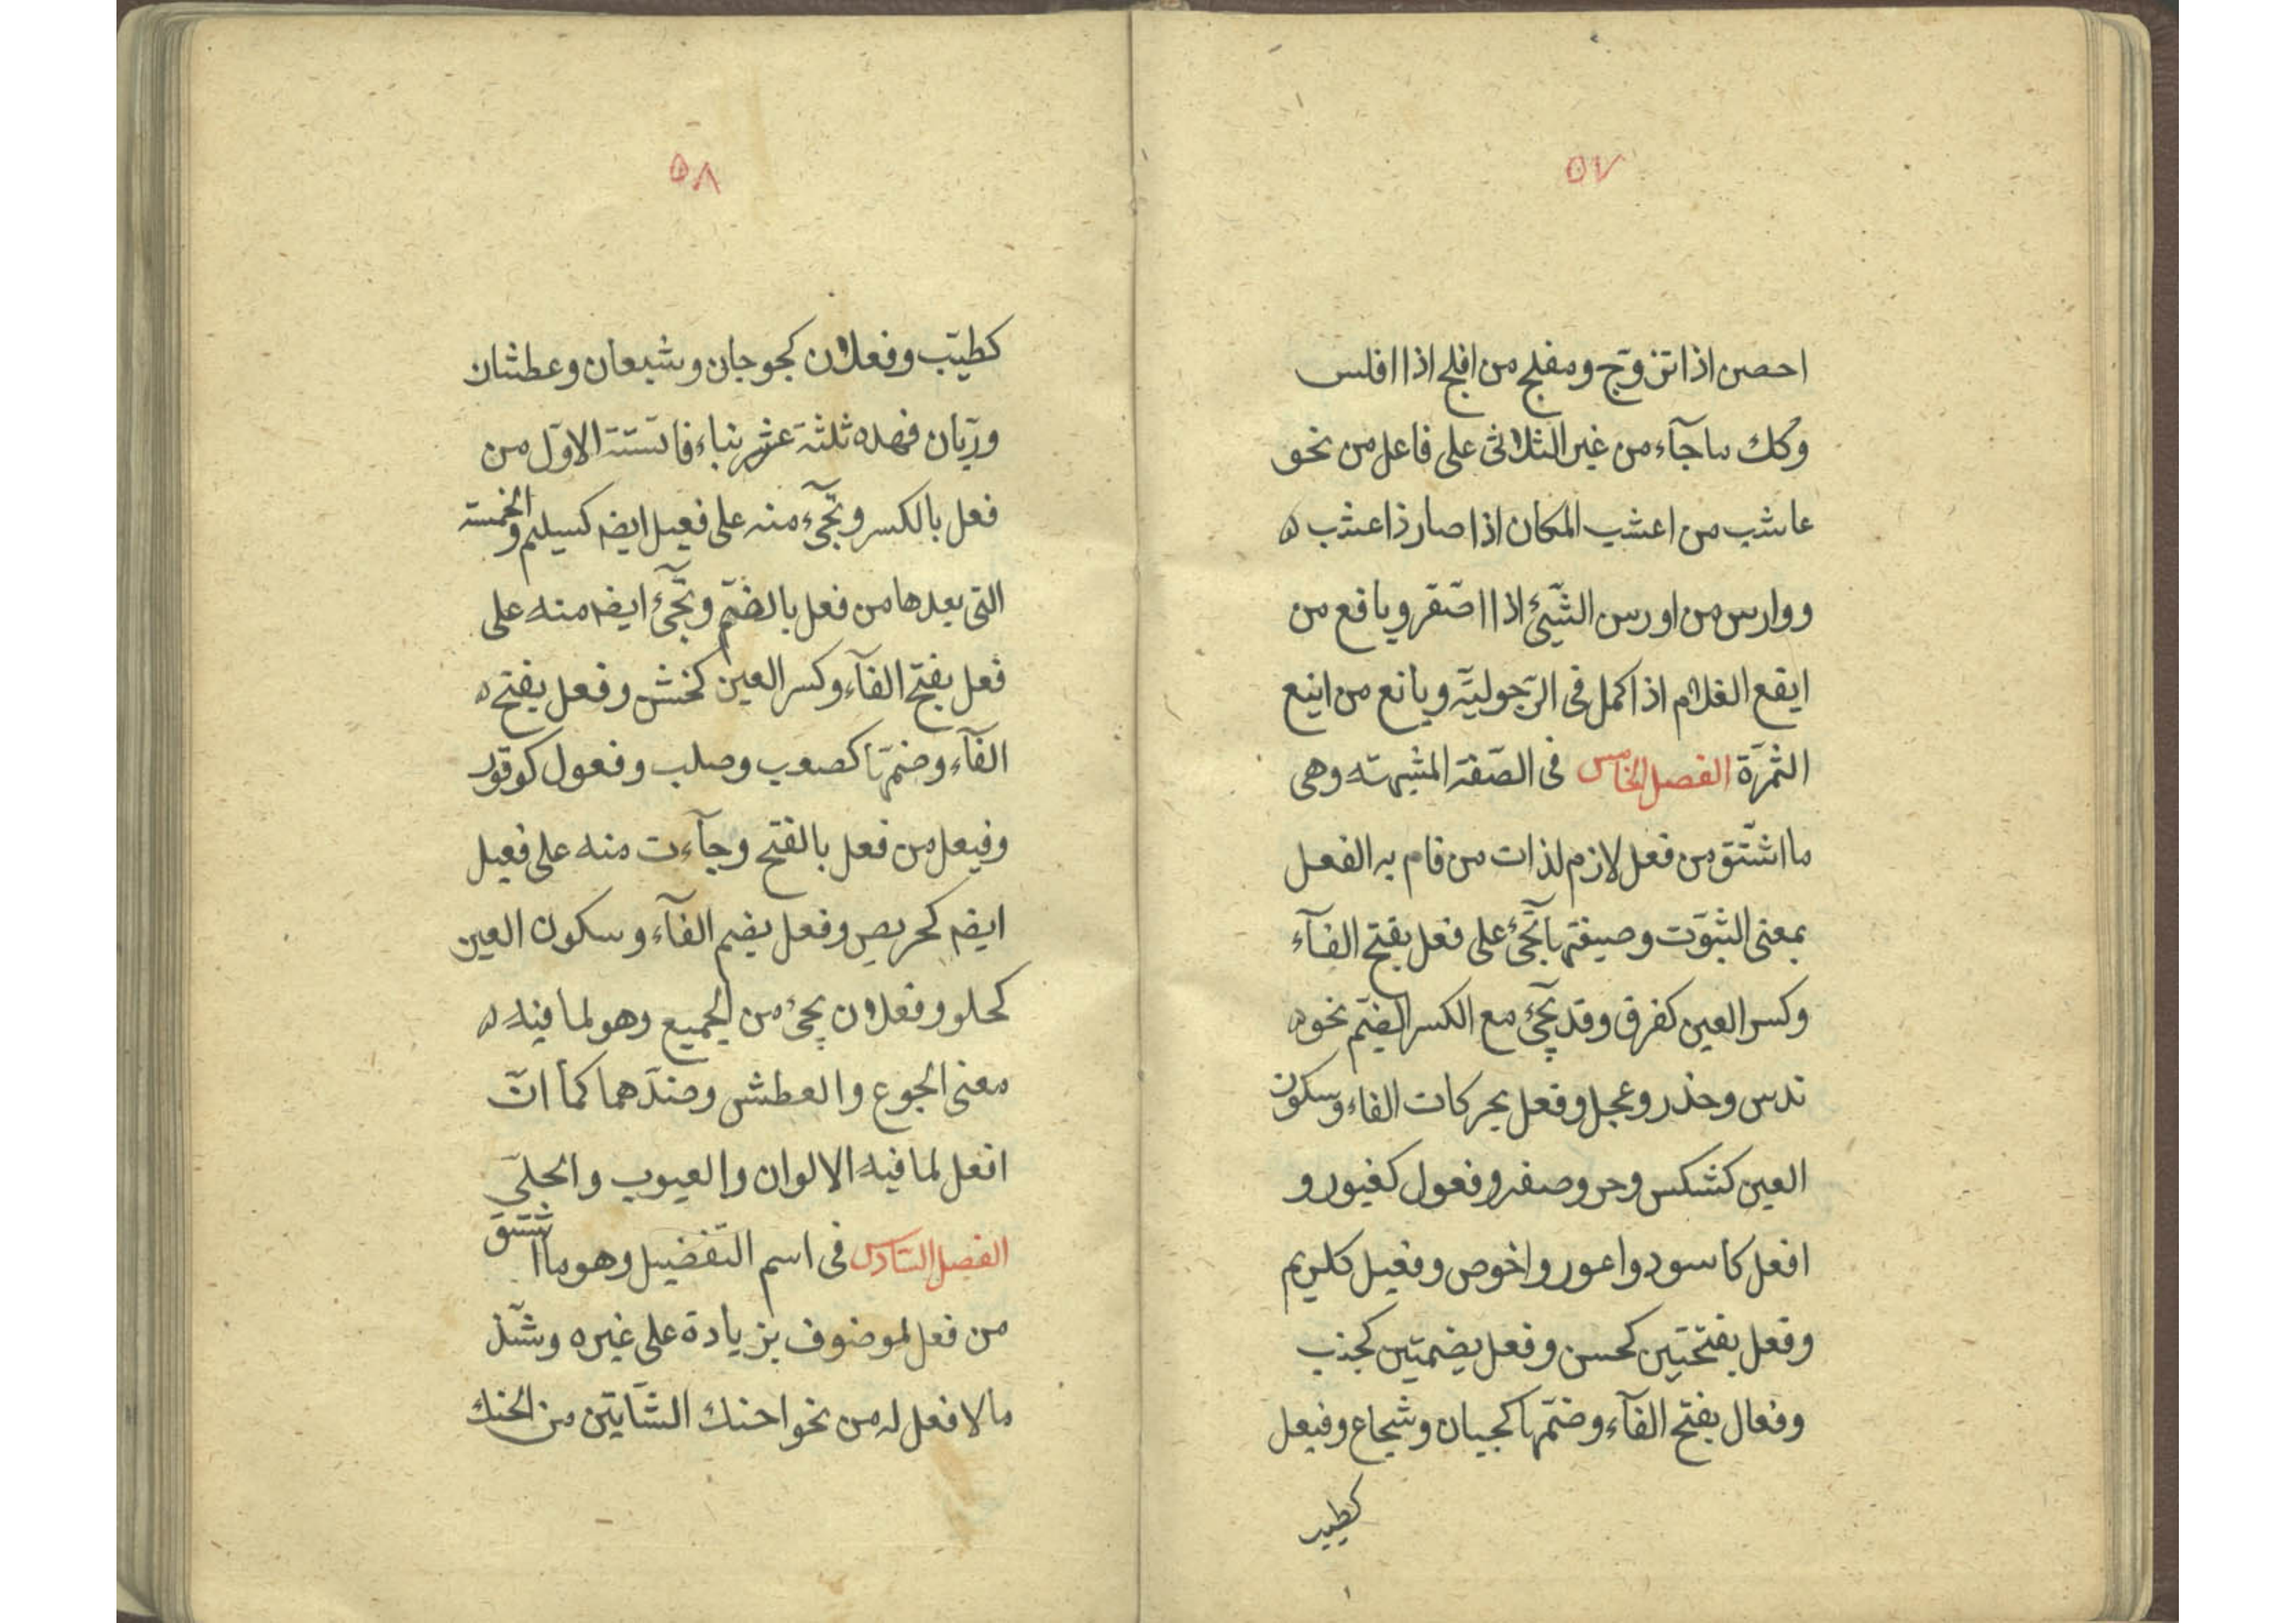 ٥٧
احصن اذا تزوّج ومفلج من افلج اذا افلس
وكك ما جآء من غير الثلاثى على فاعل من نحو
عاشب من اعشب المكان اذا صار ذا عشب
ووارس من اورس الشّيئ اذا اصّفر ويافع من
ايفع الغلام اذا كمل فى الرّجوليّه ويانع من اينع
الثّمرة الفصل الخامس فى الصّفة المشبهّه وهى
ما اشتّق من فعل لازم لذات من قام به الفعل
بمعنى الثّبوت وصيغتها تجئ على فعل بفتح الفآء
وكسر العين كفرق وقد يجئ مع الكسر الضّم نحو
ندس وحذر وعجل وفعل بحركات الفاء وسكون
العين كشكس وحر وصفر وفعول كغيور و
افعل كاسود واعور واخوص وفعيل ككريم
وفعل بفتحتين كحسن وفعل بضمتين كجنب
وفعال بفتح الفآء وضمّها كجبان وشجاع وفيعل
كطيب
٥٨
كطيّب وفعلان كجوجان وشبعان وعطشان
وريّان فهذه ثلثة عشر بناء فالستة الاوّل من
فعل بالكسر وتجئ منه على فعيل ايضه كسيلم والخمسته
التى بعدها من فعل بالضّم وتجئ ايضه منه على
فعل بفتح الفآء وكسر العين كخشن وفعل بفتح
الفآء وضمّها كصعب وصلب وفعول كوقور
وفيعل من فعل بالفتح وجآءت منه على فعيل
ايضه كحريص وفعل بضم الفآء وسكون العين
كحلو وفعلان يجئ من الجميع وهو لما فيه
معنى الجوع والعطش وضدّهما كما انّ
افعل لما فيه الالوان والعيوب والحلىّ
الفصل السّادس فى اسم التّفضيل وهو ما اشتّق
من فعل لموضوف بزيادة على غيره وشّذ
ما لا فعل له من نحو احنك الشّايتن من الحنك